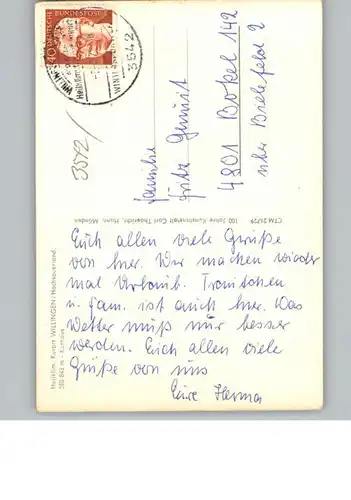 40 DEUTSCHE BUNDESPOST
3542
3572/
Familie
Fritz
4801 Bokel 142
über Bielefeld 2
CTM 100 Jahre Kunstanstalt Carl Thoericht, Hann. Münden
Heilklim. Kurort WILLINGEN/Hochsauerland.
Euch allen viele Grüße
von hier. Wir machen wieder
mal Urlaub.
u. Fam. ist auch hier. Das
Wetter muß nur besser
werden. Euch allen viele
Grüße von uns
Eure Herma